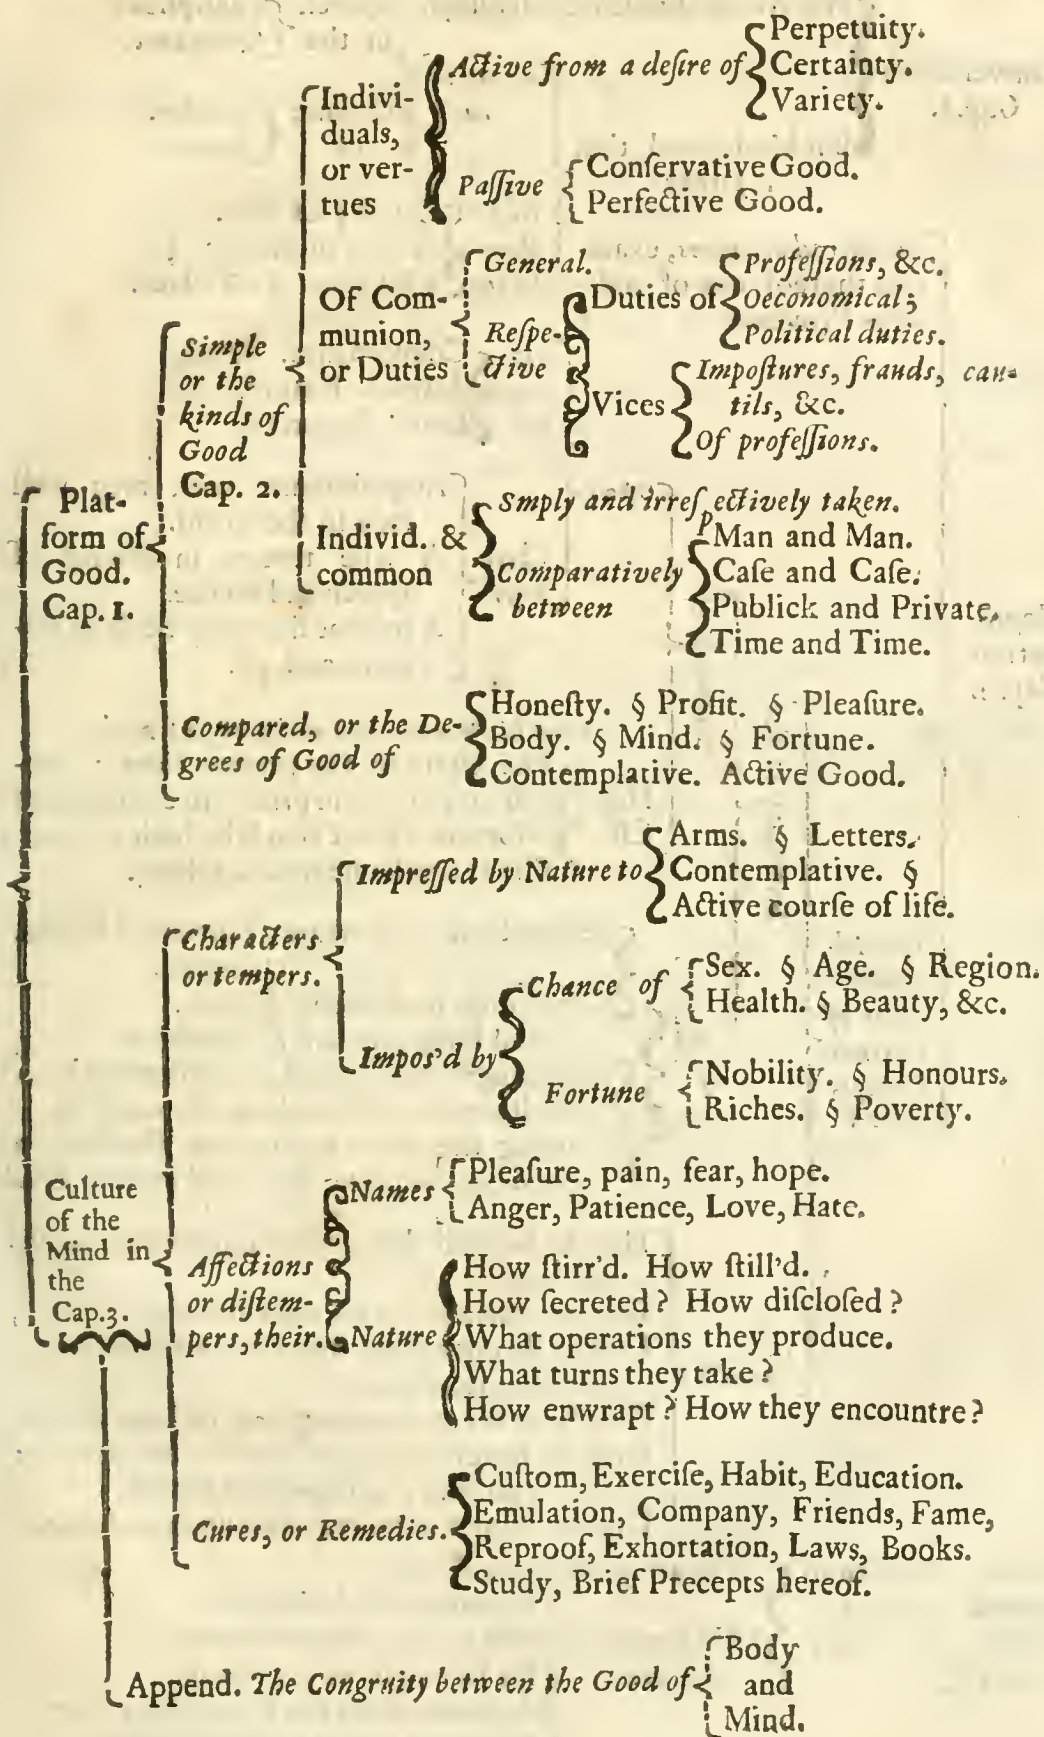 Plat-
form of
Good.
Cap. 1.
Simple
or the
kinds of
Good
Cap. 2.
Indivi-
duals,
or ver-
tues
Active from a deſire of
Perpetuity.
Certainty.
Variety.
Paſſive
Conſervative Good.
Perfective Good.
Of Com-
munion,
or Duties
General.
Reſpe-
ctive
Duties of
Profeſſions, &c.
Oeconomical;
Political duties.
Vices
Impoſtures, frauds, cau-
tils, &c.
Of profeſſions.
Individ. &
common
Smply and irreſpectively taken.
Comparatively
between
Man and Man.
Caſe and Caſe.
Publick and Private.
Time and Time.
Compared, or the De-
grees of Good of
Honeſty. § Profit. § Pleaſure.
Body. § Mind. § Fortune.
Contemplative. Active Good.
Culture
of the
Mind in
the
Cap.3.
Characters
or tempers.
Impreſſed by Nature to
Arms. § Letters.
Contemplative. §
Active courſe of life.
Impos'd by
Chance of
Sex. § Age. § Region.
Health. § Beauty, &c.
Fortune
Nobility. § Honours.
Riches. § Poverty.
Affections
or diſtem-
pers, their.
Names
Pleaſure, pain, fear, hope.
Anger, Patience, Love, Hate.
Nature
How ſtirr'd. How ſtill'd.
How ſecreted? How diſcloſed?
What operations they produce.
What turns they take?
How enwrapt? How they encountre?
Cures, or Remedies.
Cuſtom, Exerciſe, Habit, Education.
Emulation, Company, Friends, Fame,
Reproof, Exhortation, Laws, Books.
Study, Brief Precepts hereof.
Append. The Congruity between the Good of
Body
and
Mind.